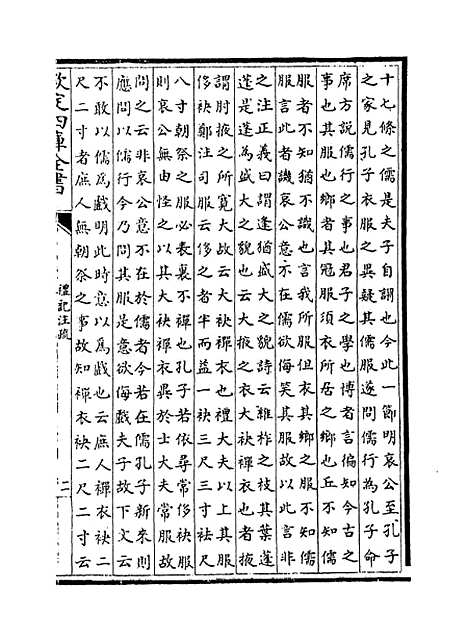 十七條之儒是夫子自謂也今此一節明哀公至孔子
之家見孔子衣服之異疑其儒服遂問儒行為孔子命
席方說儒行之事也君子之學也博者言徧知今古之
事也其服也鄉者其冠服須衣所居之鄉也丘不知儒
服者不知猶不識也言我所服但衣其鄉之服不知儒
服言此者譏哀公意不在儒欲侮笑其服故以此言非
之注正義曰謂逢猶盛大之貌詩云維柞之枝其葉蓬
蓬是逢為盛大之貌也云大掖之衣大袂禪衣也者掖
謂肘掖之所寬大故云大袂禪衣也禮大夫以上其服
侈袂鄭注司服云侈之者半而益一袂三尺三寸袪尺
八寸朝祭之服必表裏不禪也孔子若依尋常侈袂服
則哀公無由怪之以其大袂禪衣異於士大夫常服故
問之云非哀公意不在於儒者今若在儒孔子新來則
應問以儒行今乃問其服是意欲侮戲夫子故下文云
不敢以儒為戲明此時意以為戲也云庶人禪衣袂二
尺二寸者庶人無朝祭之事故知禪衣袂二尺二寸云
欽定四庫全書
禮記注疏
二